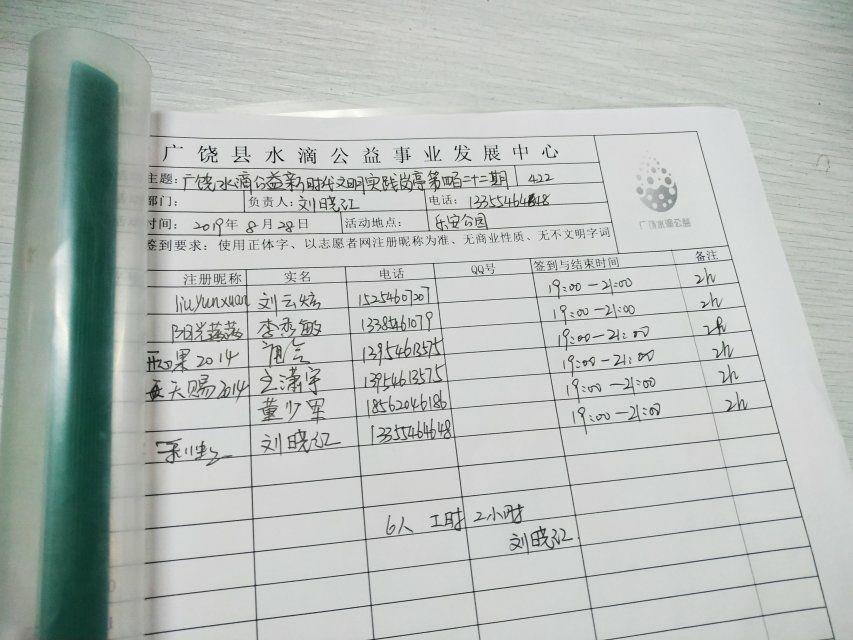 广饶县水滴公益事业发展中心
主题: 广饶水滴公益新时代文明实践岗亭第四百二十二期 422
部门: 负责人: 刘晓江 电话: 13355464648
时间: 2019年8月28日 活动地点: 乐安公园
签到要求: 使用正体字、以志愿者网注册昵称为准、无商业性质、无不文明字词
注册昵称 实名 电话 QQ号 签到与结束时间 备注
liuyunxuan 刘云炫 15254607207 19:00-21:00 2h
阳光 李秀敏 13385461079 19:00-21:00 2h
果2014 13954613575 19:00-21:00 2h
天赐2014 潇宇 13954613575 19:00-21:00 2h
董少军 18562046186 19:00-21:00 2h
刘晓江 13355464648 19:00-21:00 2h
6人 工时 2小时
刘晓江
广饶水滴公益